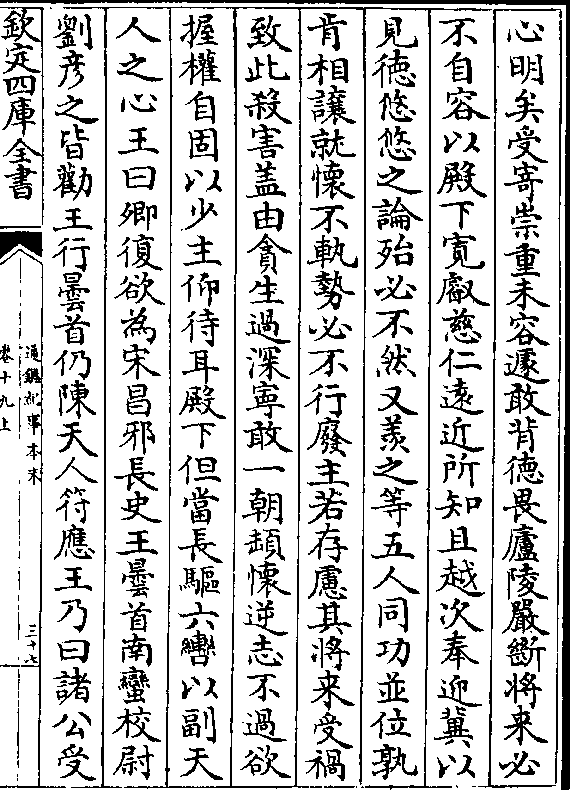 心明矣受寄崇重未容遽敢背德畏廬陵嚴斷將来必
不自容以殿下寛叡慈仁遠近所知且越次奉迎冀以
見德悠悠之論殆必不然又羨之等五人同功並位孰
肯相讓就懷不軌勢必不行廢主若存慮其將来受禍
致此殺害盖由貪生過深寜敢一朝頓懷逆志不過欲
握權自固以少主仰待耳殿下但當長驅六轡以副天
人之心王曰卿復欲為宋昌邪長史王曇首南蠻校尉
劉彦之皆勸王行曇首仍陳天人符應王乃曰諸公受
欽定四庫全書
通鑑紀事本末
卷十九上
三十七